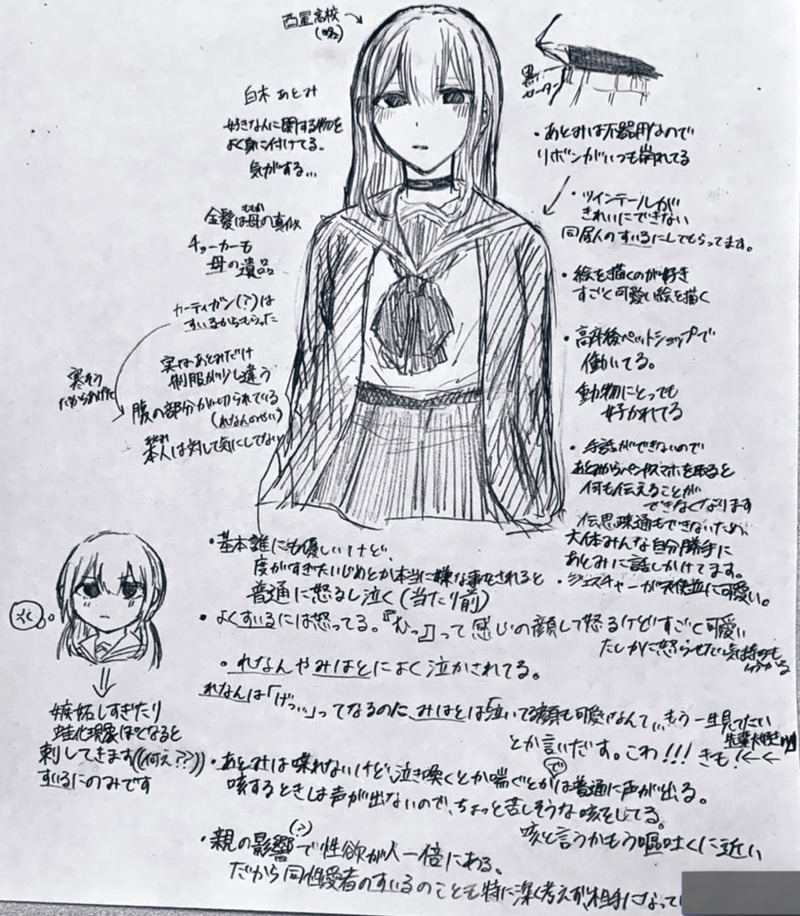 西星高校
白木 あとみ
好きなんに関する物を
よく身に付けてる。
気がする…
金髪は母の真似
チョーカーも
母の遺品
カーディガン(?)は
すいるからもらった
寒そう
だからあげた
実はあとみだけ
制服が少し違う
腹の部分が切られている
(れなんのせい)
本人は対して気にしてない
黒
・あとみは不器用なので
リボンがいつも崩れてる
・ツインテールが
きれいにできない
同居人のすいるにしてもらってます。
・絵を描くのが好き
すごく可愛い絵を描く
・高卒後ペットショップで
働いてる。
動物にとっても
好かれてる
・手話ができないので
あとみからペンやスマホを取ると
何も伝えることが
できなくなります
伝思疎通もできないため、
大体みんな自分勝手に
あとみに話しかけてます。
・ジェスチャーが天使並に可愛い。
・基本誰にも優しいけど、
度がすぎたいじめとか本当に嫌な事をされると
普通に怒るし泣く(当たり前)
・よくすいるには怒ってる。『むっ』って感じの顔して怒るけどすごく可愛い
たしかに怒らせたい気持ちも
・れなんやみはとによく泣かされてる。
れなんは「げっ…」ってなるのに、みはとは「泣いてる顔も可愛いなんて…もう一生見てたい」
とか言いだす。こわ!!!きも!
嫉妬しすぎたり
蛙化現象ぽくなると
刺してきます((何え??))
すいるにのみです
・あとみは喋れないけど泣き喚くとか喘ぐとか(で)は普通に声が出る。
咳するときは声が出ないので、ちょっと苦しそうな咳をしてる。
咳と言うかもう嘔吐くに近い
・親の影響(?)で性欲が人一倍にある。
だから同性愛者のすいるのことも特に深く考えず、相手になってい